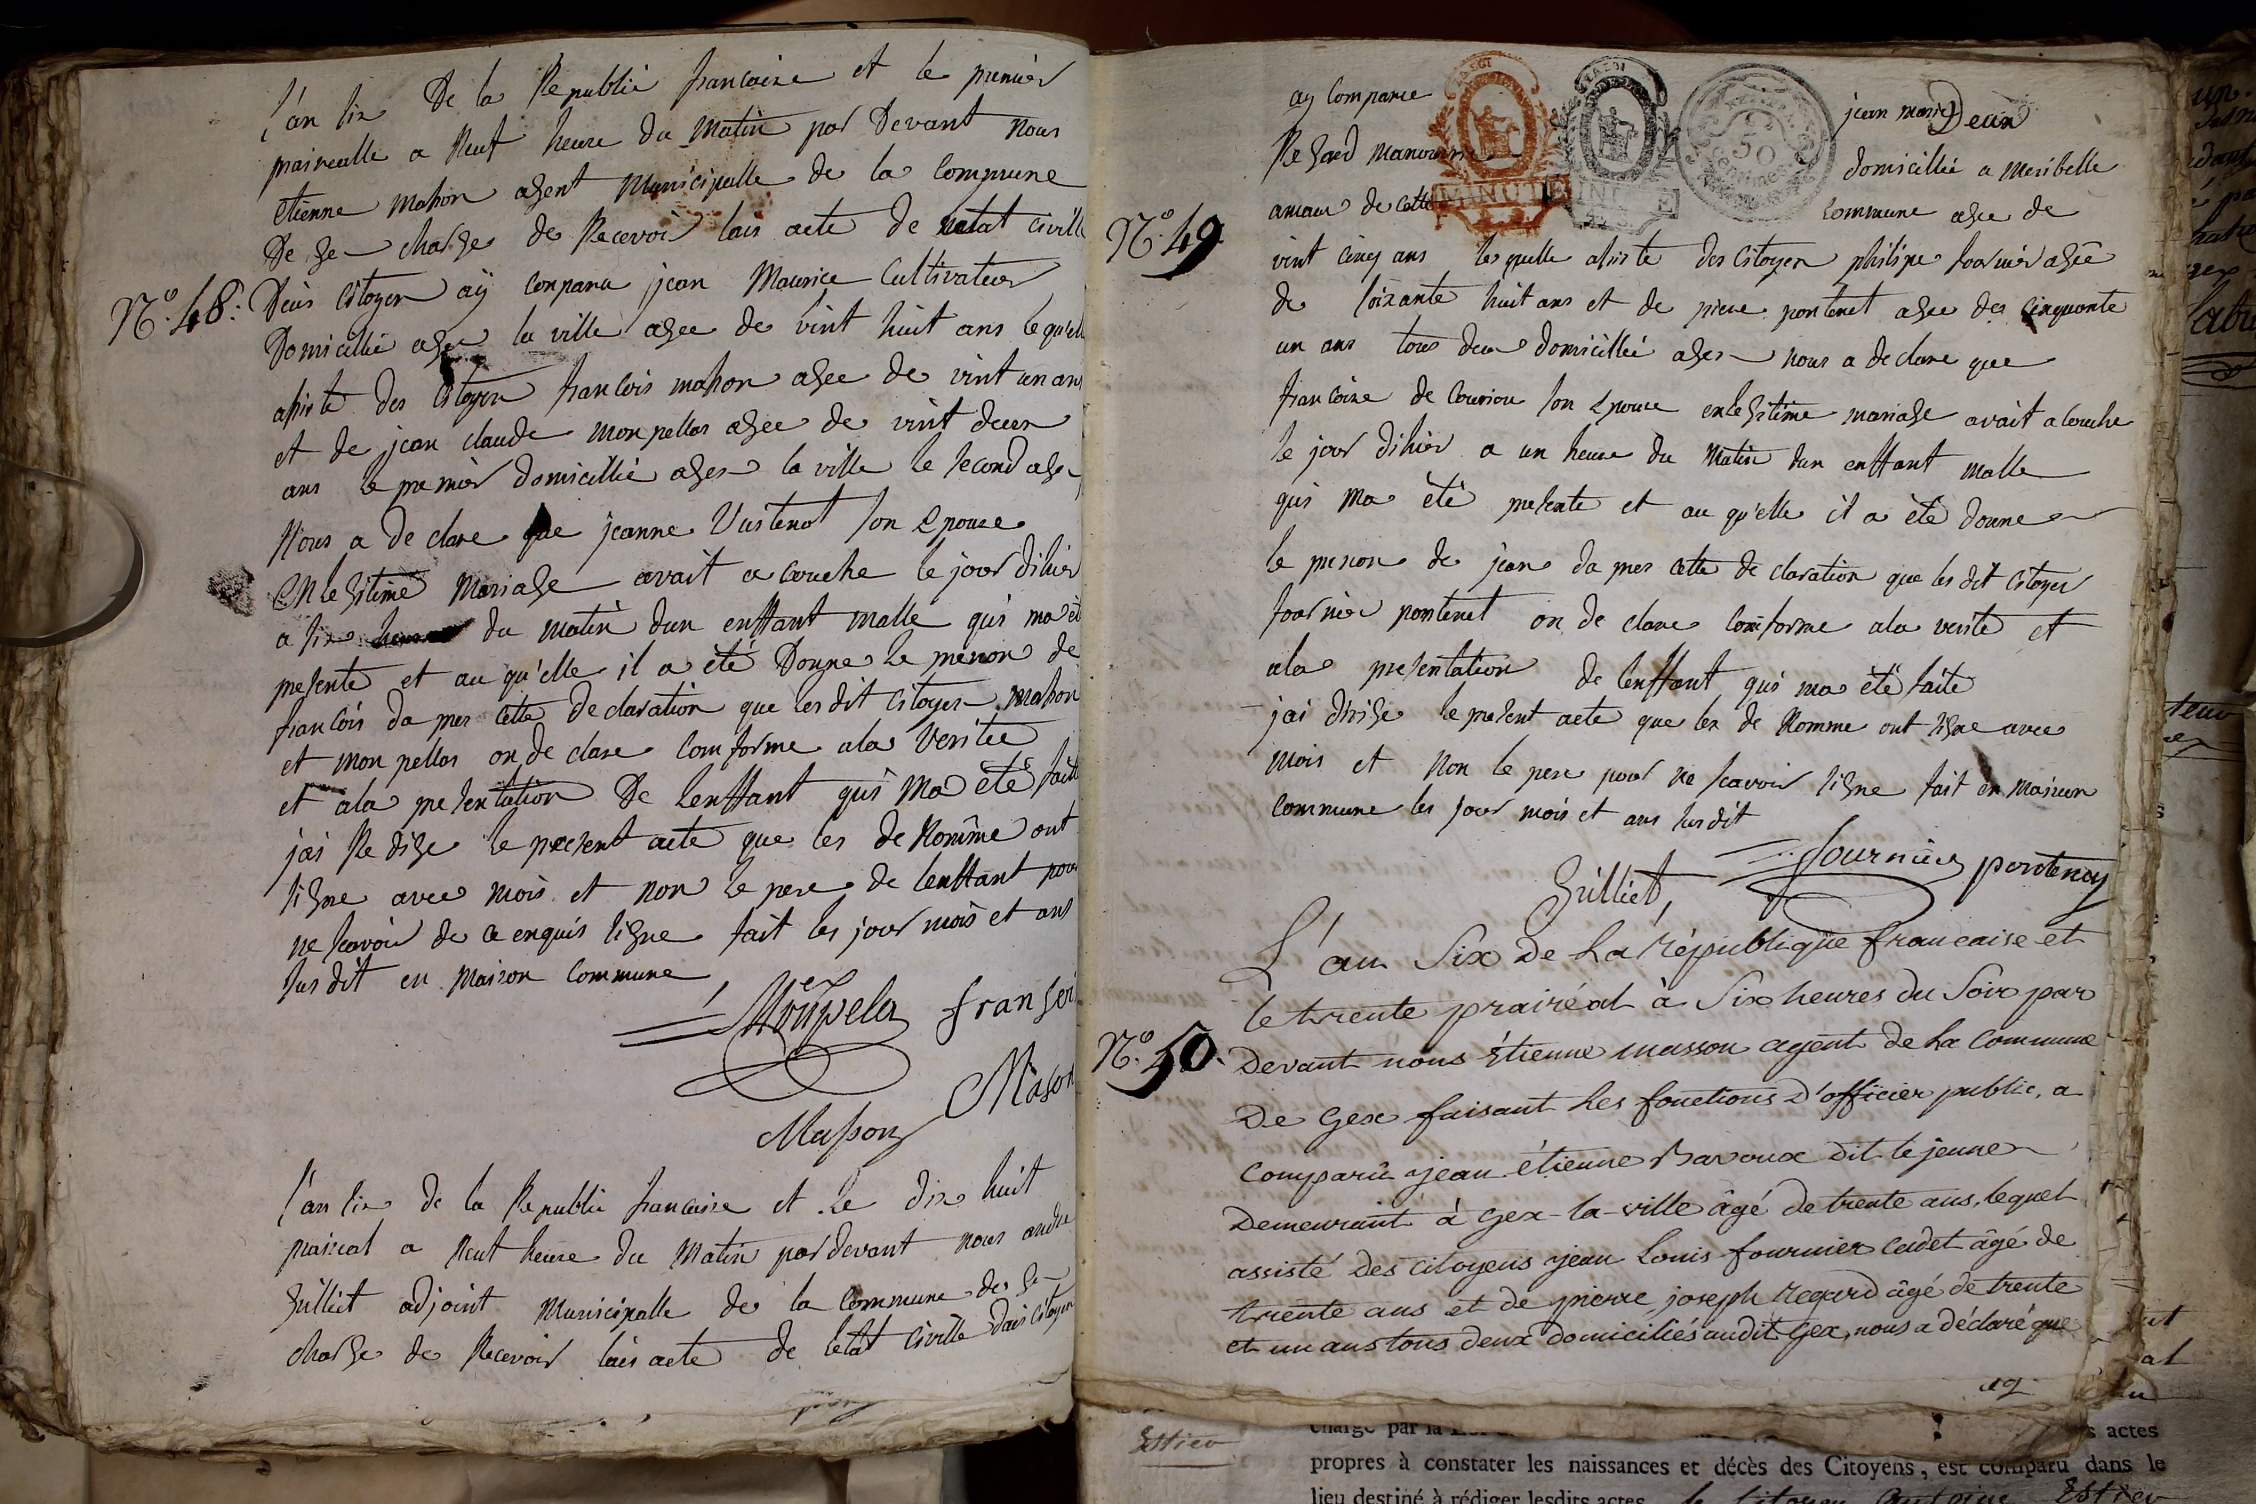 l'an six De la Republié francaize et le premier
praireaille a Neuf heure du Matin par Devant nous
etienne mahon agent Municipalle de la commune
De Ge charge de Recevoir lais acte de netat civille
N.o 48. Deus citoyen aÿ conparu jean Maurice Cultivateur
Domicillié agex la ville agee de vint huit ans le qu'elle
asisté des citoyen francois mahon agee de vint un ans
et de jean claude monpellas agee de vint deux
ans le premier domicillié agex la ville le second agex
Nous a de clare que jeanne Vustenot son Epouze
en legitime Mariage avait a couche le jour dihier
a six du matin dun enffant malle qui ma été
presente et au qu'elle il a été Donne le prenon de
francois da pres cette declaration que les dit citoyen mahon
et mon pellas on de clare comforme ala Veritee
et ala presentation De lenffant qui Ma été faitte
jai Redige le present acte que les de Nomme ont
signe avec mois et non le pere de lenffant pour
ne scavoir de ce enquis signe fait les jour mois et ans
sus dit en Maison commune
Monpela fransoi
Mason
Masson
l'an six de la Republié francaise et le dix huit
prairial a neuf heure du Matin par devant nous andre
Gilliet adjoint Municipalle de la commune de Ge
charge de Recevoir lais acte de letat civille dais citoyen
ay comparue jean marie Dean
Regard manouvrie domicillié a Meribelle
amaux de cette commune agee de
N.o 49. vint cinq ans les quelle asisté des citoyen philipe fournier agée
de soixante huit ans et de piere pontenet agee des cinquante
un ans tous deux domicillié agex nous a declare que
francoize de Couriou son Epouse en legitime mariage avait a couche
le jour dihier a un heure du Matin dun enffant malle
qui ma été presente et au qu'elle il a été donne
le prenon de jean da pres cette declaration que les dit citoyen
fournier pontenet on de clare comforme ala verité et
ala presentation de lenffant qui ma été faite
jai dirige le present acte que les de Nomme ont signe avec
mois et Non le pere pour ne scavoir signe fait en Maison
commune les jour mois et ans sus dit
Gilliet, fournier pontenay
L'an Six De La République francaise et
le trente prairéal à Six heures du Soir par
N.o 50. Devant nous Étienne masson agent de La Commune
De Gex faisant les fonctions d'officier public, a
comparû jean étienne Bavoux dit le jeune
Demeurant à Gex-la-ville âgé de trente ans, lequel
assisté des citoyens jean Louis fournier cadet âgé de
trente ans et de pierre joseph Regard âgé de trente
et un ans tous deux domiciliés audit Gex, nous a déclaré que
chargé par la
s actes
propres à constater les naissances et décès des Citoyens, est comparu dans le
lieu destiné à rédiger lesdits actes